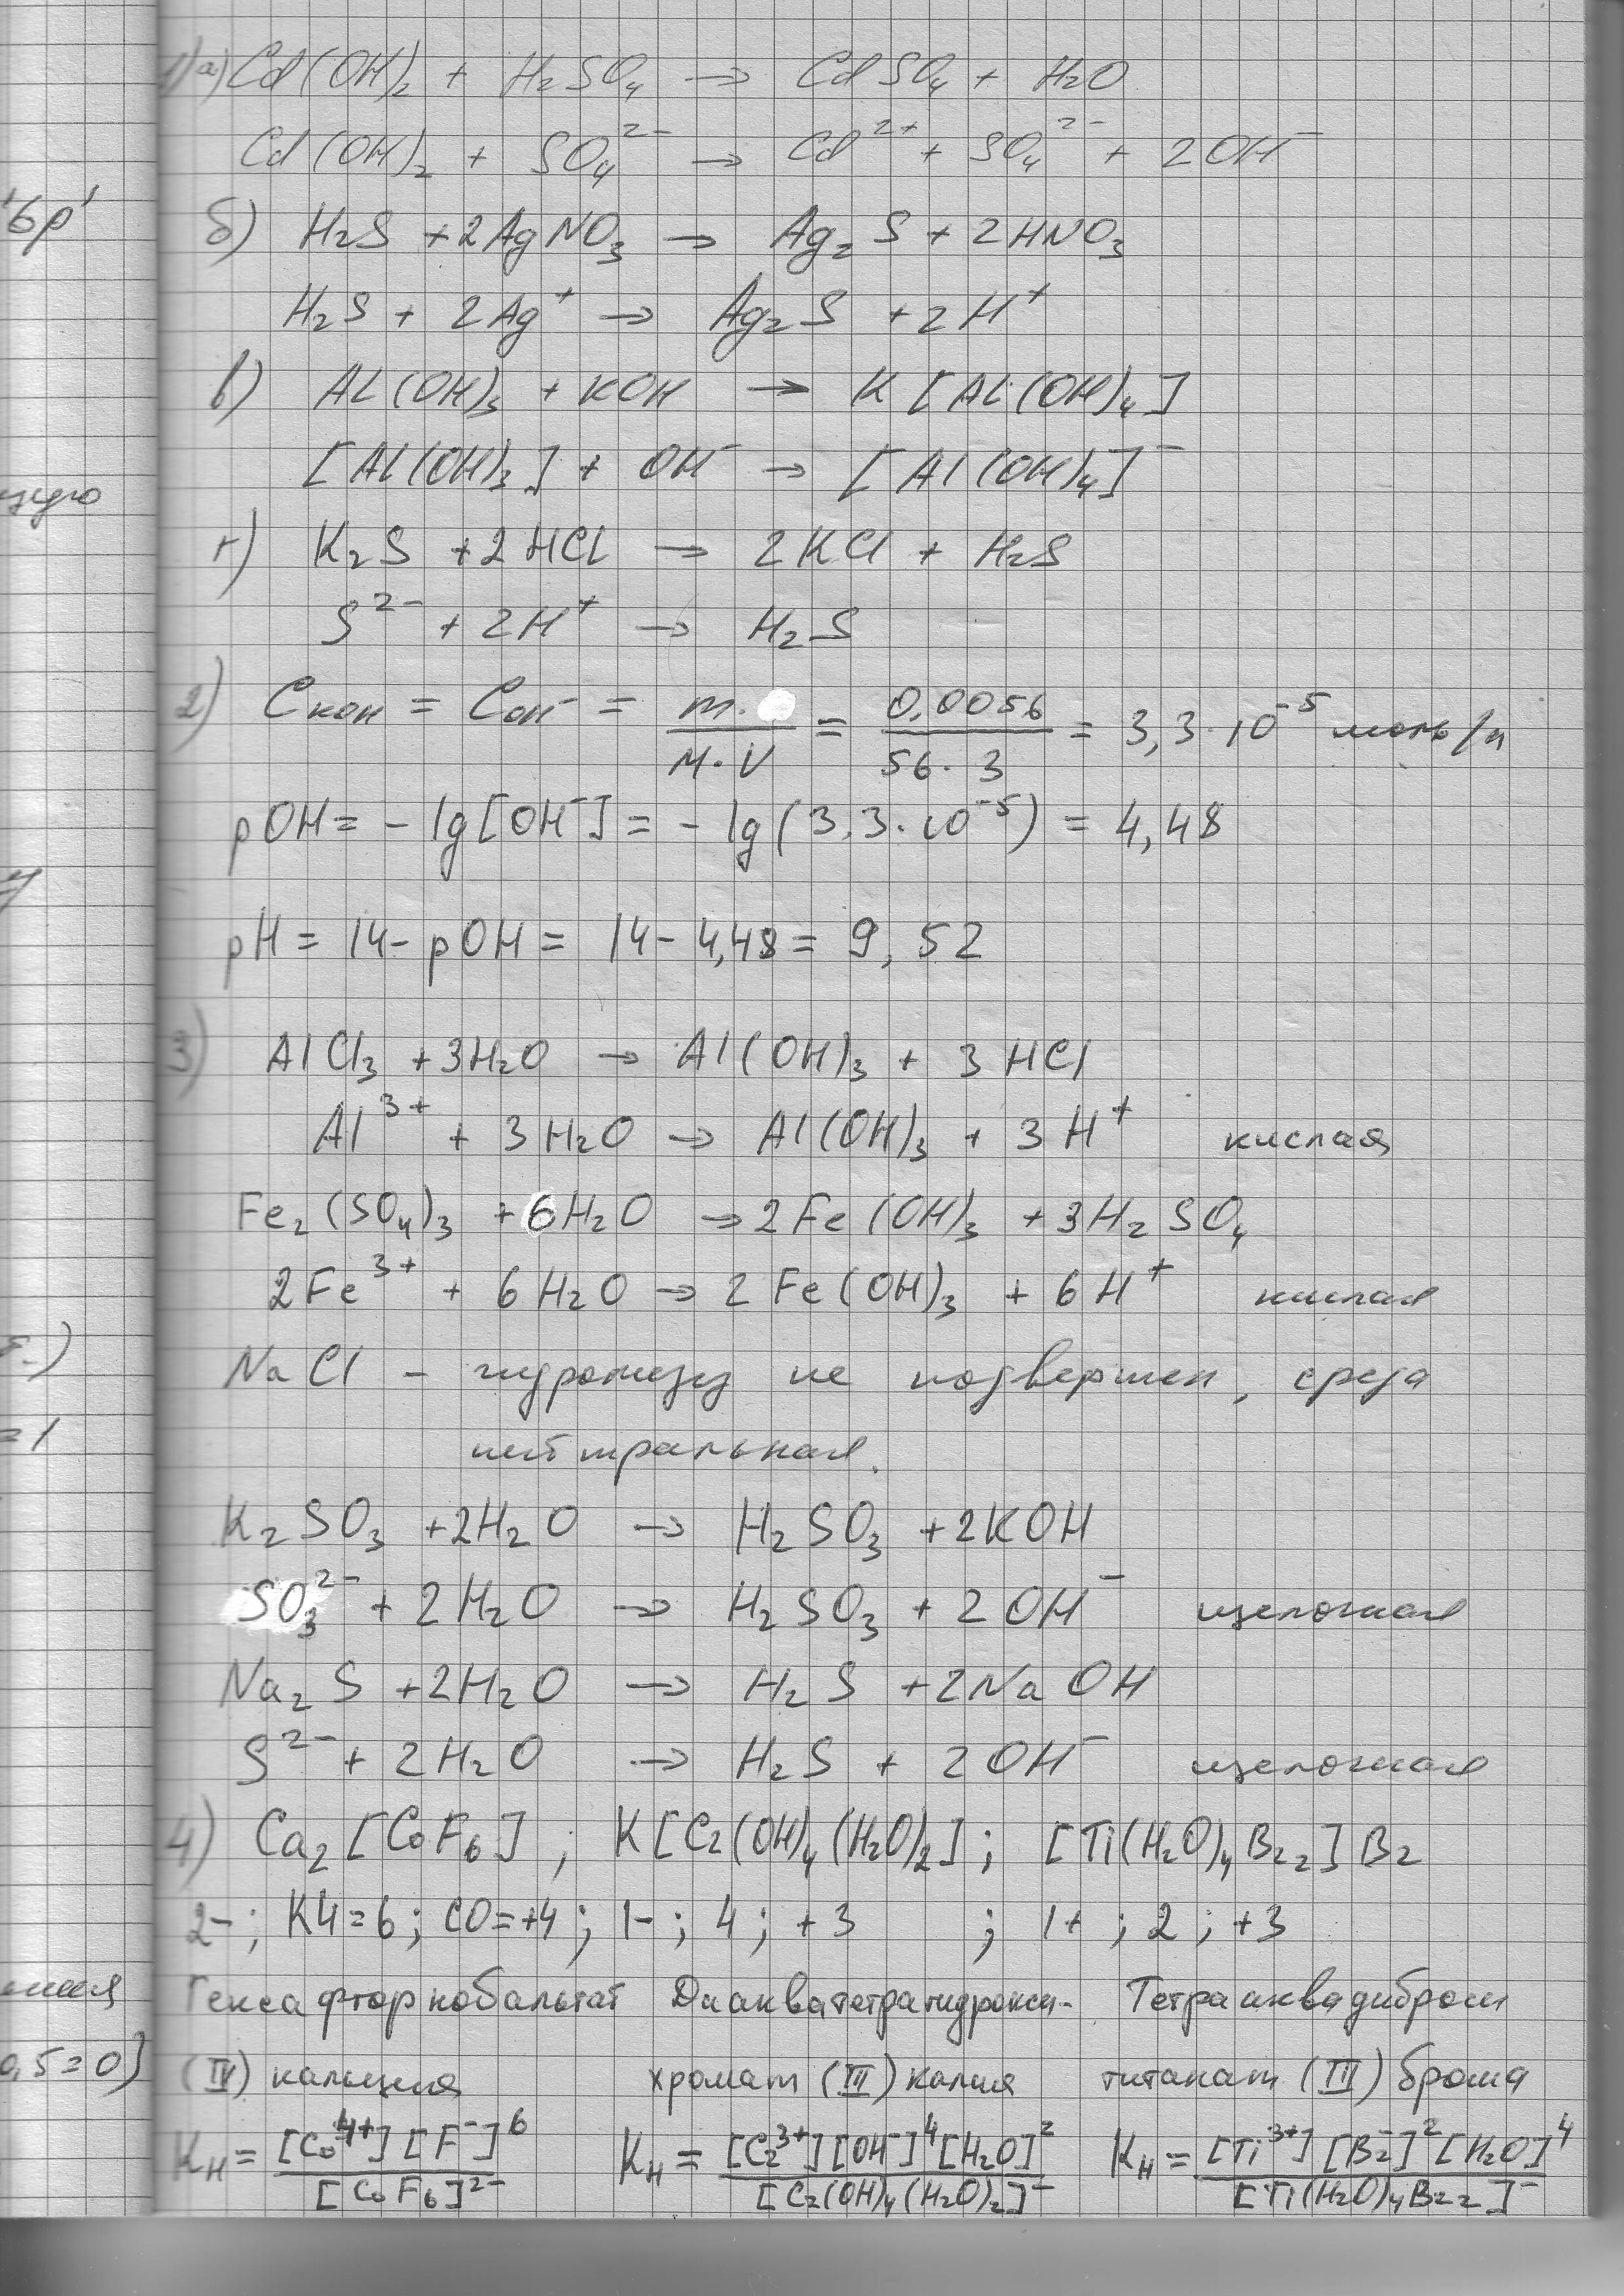 1) а) Cd(OH)₂ + H₂SO₄ → CdSO₄ + H₂O
Cd(OH)₂ + SO₄²⁻ → Cd²⁺ + SO₄²⁻ + 2OH⁻
б) H₂S + 2AgNO₃ → Ag₂S + 2HNO₃
H₂S + 2Ag⁺ → Ag₂S + 2H⁺
в) Al(OH)₃ + KOH → K[Al(OH)₄]
[Al(OH)₃] + OH⁻ → [Al(OH)₄]⁻
г) K₂S + 2HCl → 2KCl + H₂S
S²⁻ + 2H⁺ → H₂S
2) Cкон = Cон⁻ = m·/M·V = 0,0056/56·3 = 3,3·10⁻⁵ моль/л
pOH = -lg[OH⁻] = -lg(3,3·10⁻⁵) = 4,48
pH = 14 - pOH = 14 - 4,48 = 9,52
3) AlCl₃ + 3H₂O → Al(OH)₃ + 3HCl
Al³⁺ + 3H₂O → Al(OH)₃ + 3H⁺ кислая
Fe₂(SO₄)₃ + 6H₂O → 2Fe(OH)₃ + 3H₂SO₄
2Fe³⁺ + 6H₂O → 2Fe(OH)₃ + 6H⁺ кислая
NaCl - гидролизу не подвержен, среда
нейтральная.
K₂SO₃ + 2H₂O → H₂SO₃ + 2KOH
SO₃²⁻ + 2H₂O → H₂SO₃ + 2OH⁻ щелочная
Na₂S + 2H₂O → H₂S + 2NaOH
S²⁻ + 2H₂O → H₂S + 2OH⁻ щелочная
4) Ca₂[CoF₆] ; K[Cr(OH)₄(H₂O)₂] ; [Ti(H₂O)₄Br₂]Br
2- ; КЧ=6 ; СО=+4 ; 1- ; 4 ; +3 ; 1+ ; 2 ; +3
Гексафторкобальтат Диакватетрагидрокси- Тетрааквадибром
(IV) кальция хромат (III) калия титанат (III) брома
Kн = [Co⁴⁺][F⁻]⁶/[CoF₆]²⁻ Kн = [Cr³⁺][OH⁻]⁴[H₂O]²/[Cr(OH)₄(H₂O)₂]⁻ Kн = [Ti³⁺][Br⁻]²[H₂O]⁴/[Ti(H₂O)₄Br₂]⁻